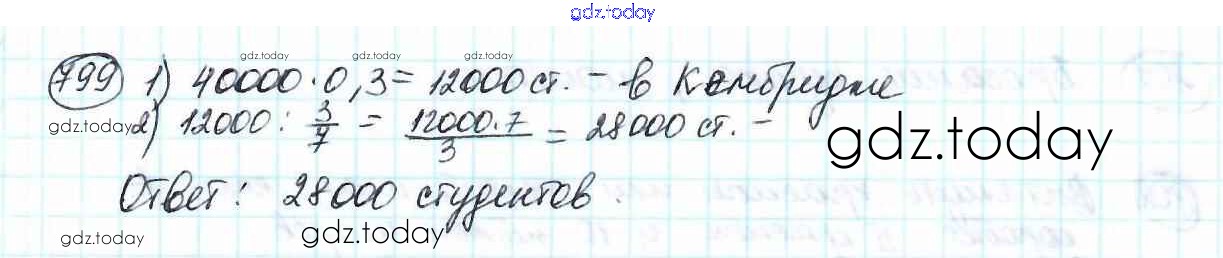 gdz.today
gdz.today gdz.today gdz.today
799 1) 40000 · 0,3 = 12000 ст. - в Кембридже
gdz.today 2) 12000 : 3/7 = 12000·7/3 = 28000 ст. -
gdz.today
Ответ: 28000 студентов.
gdz.today gdz.today